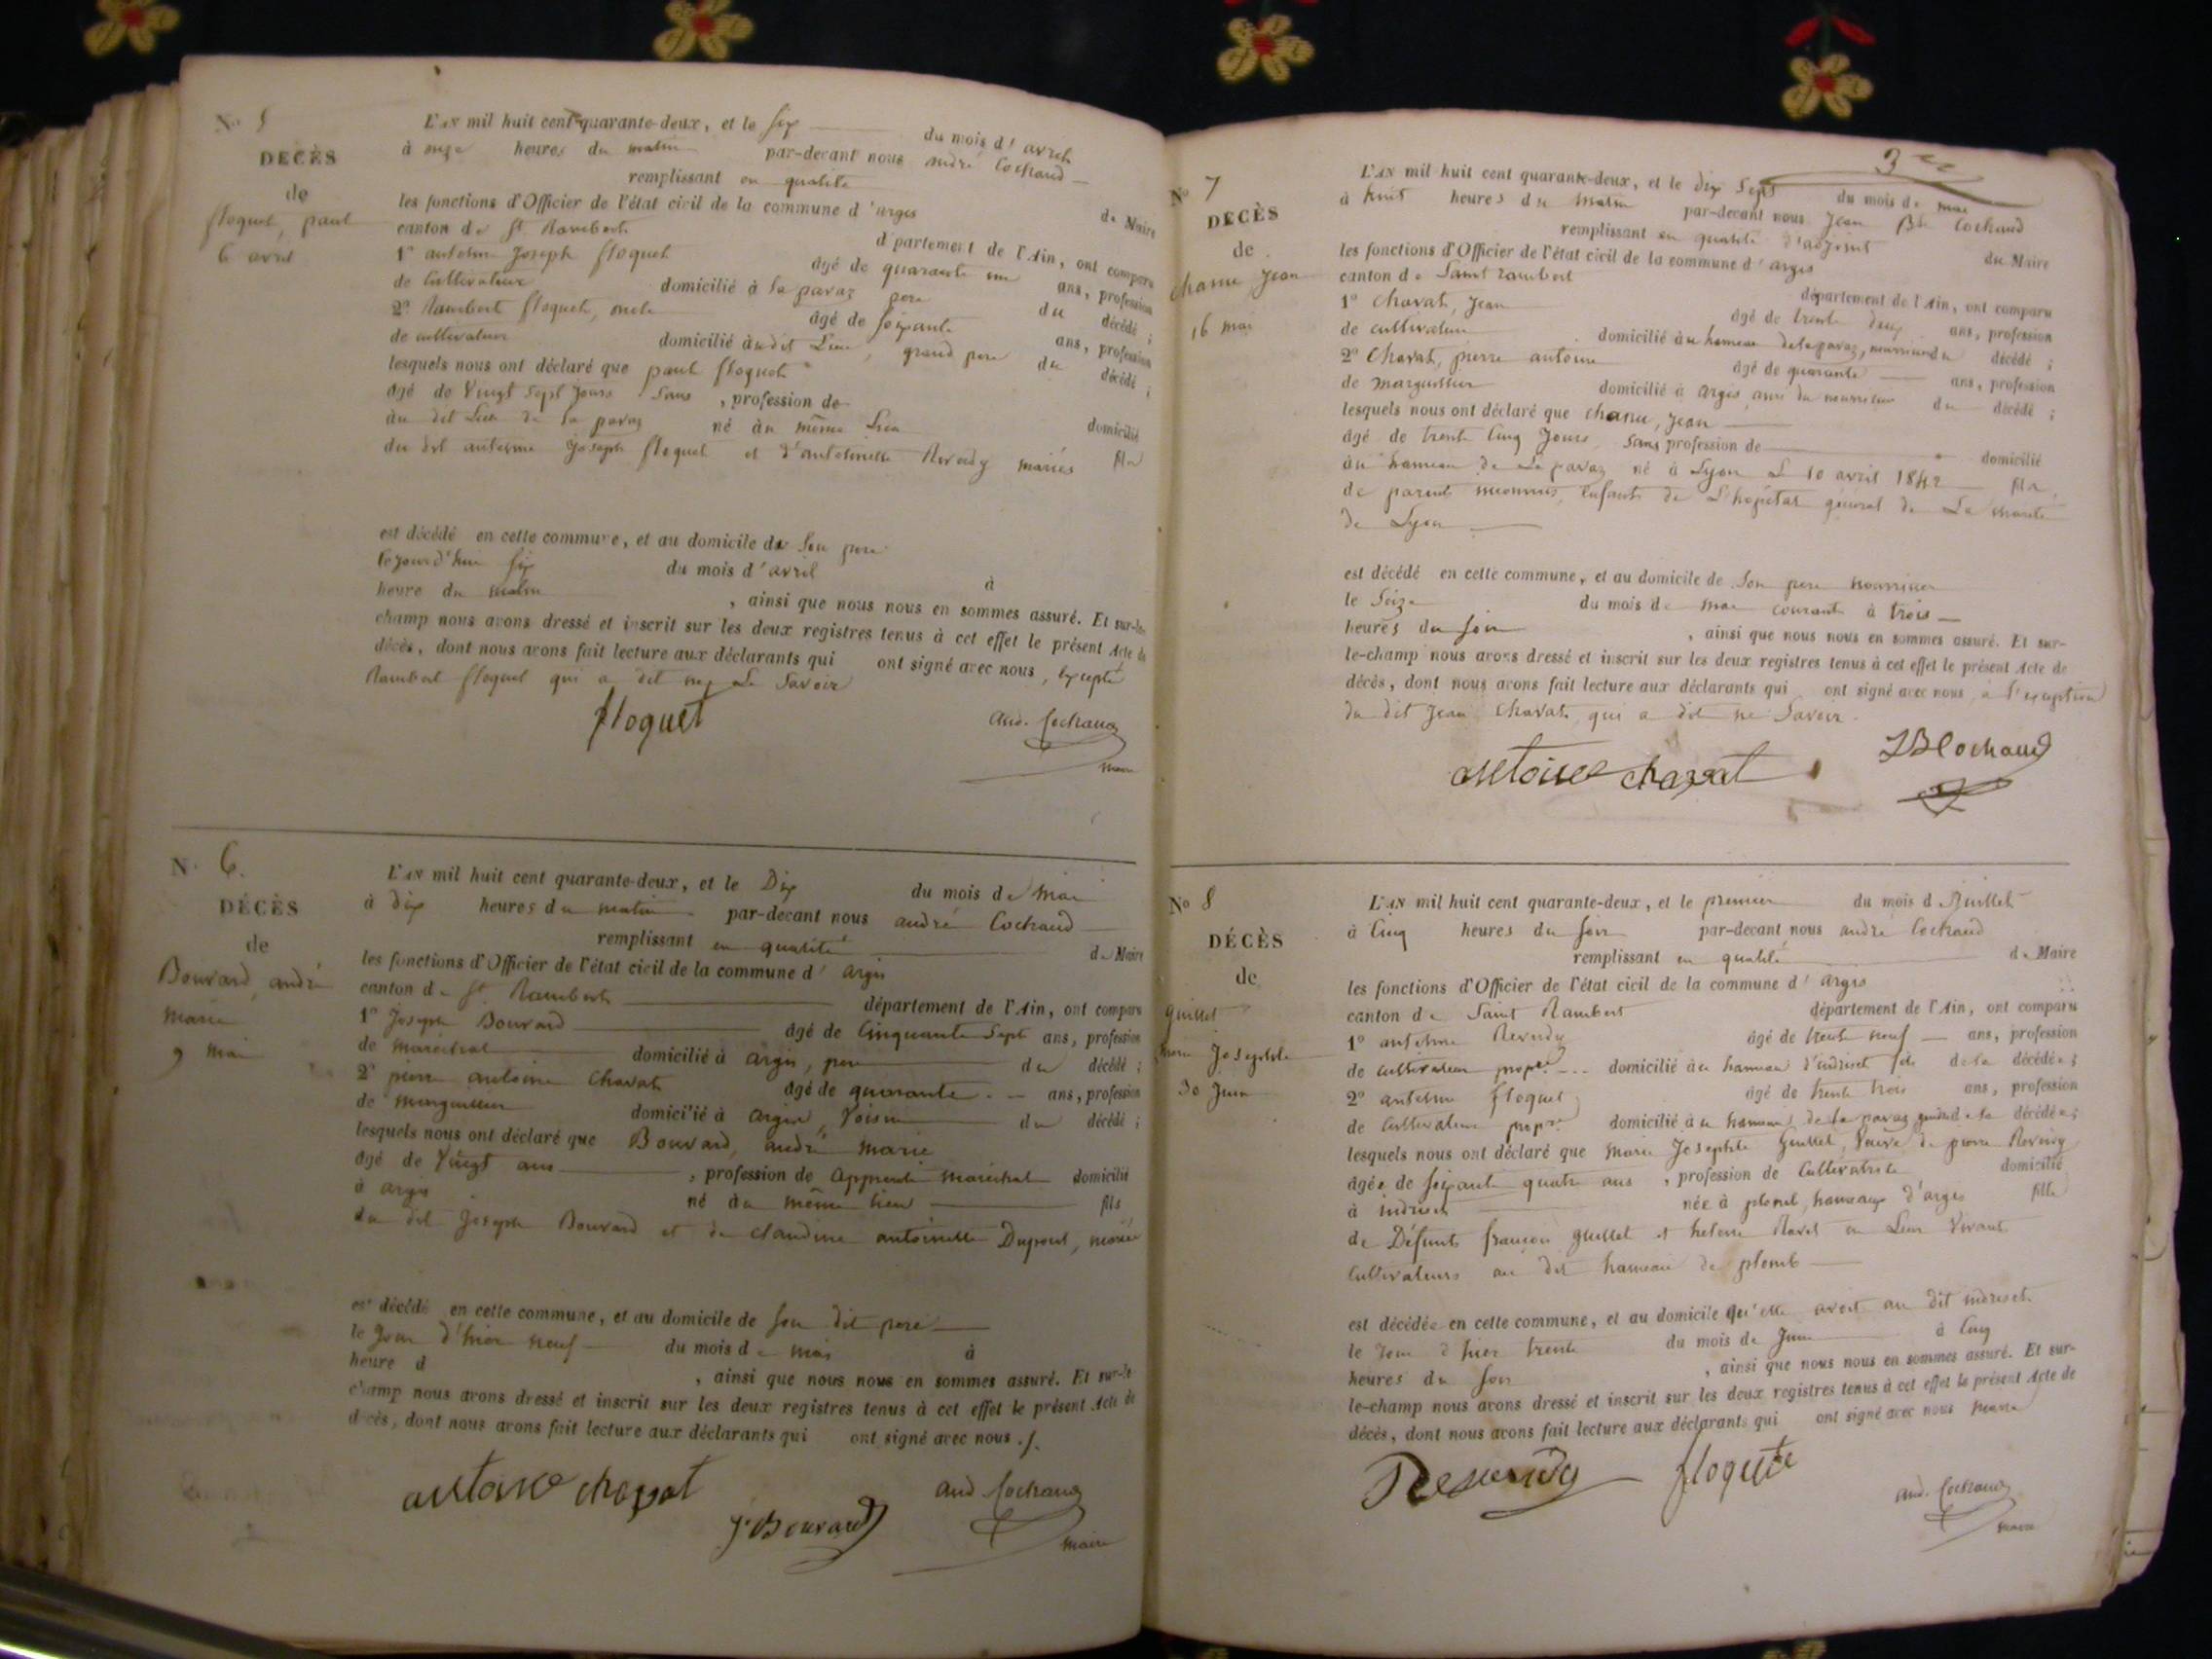 No 5
DÉCÈS
de
floquet, paul
6 avril
L'AN mil huit cent quarante-deux, et le six du mois d'avril
à onze heures du matin par-devant nous andré Cochand
remplissant en qualité de Maire
les fonctions d'Officier de l'état civil de la commune d'argis
canton de St Rambert département de l'Ain, ont comparu
1o antelme Joseph floquet âgé de quarante un ans, profession
de Cultivateur domicilié à la pavaz pere du décédé ;
2o Rambert floquet, âgé de soixante ans, profession
de cultivateur domicilié audit Lieu, grand pere du décédé ;
lesquels nous ont déclaré que paul floquet
âgé de Vingt sept Jours Sans , profession de domicilié
au dit Lieu de la pavaz né au même Lieu fils
du dit antelme Joseph floquet et d'antoinette Reverdy mariés
est décédé en cette commune, et au domicile de son pere
cejourd'hui six du mois d'avril à
heure du matin , ainsi que nous nous en sommes assuré. Et sur-le-
champ nous avons dressé et inscrit sur les deux registres tenus à cet effet le présent Acte de
décès, dont nous avons fait lecture aux déclarants qui ont signé avec nous, excepté
Rambert floquet qui a dit ne Le Savoir
floquet
And. Cochand
maire
No 6.
DÉCÈS
de
Bouvard, andré
marie
9 mai
L'AN mil huit cent quarante-deux, et le Dix du mois de mai
à dix heures du matin par-devant nous andré Cochand
remplissant en qualité de Maire
les fonctions d'Officier de l'état civil de la commune d'argis
canton de St Rambert département de l'Ain, ont comparu
1o Joseph Bouvard âgé de Cinquante Sept ans, profession
de maréchal domicilié à argis, pere du décédé ;
2o pierre antoine Chavat âgé de quarante ans, profession
de Marguillier domicilié à argis, Voisin du décédé ;
lesquels nous ont déclaré que Bouvard, andré marie
âgé de Vingt ans , profession de apprenti maréchal domicilié
à argis né au même lieu fils
du dit Joseph Bouvard et de claudine antoinette Dupont, mariés
est décédé en cette commune, et au domicile de son dit pere
le Jour d'hier neuf du mois de mai à
heure d , ainsi que nous nous en sommes assuré. Et sur-le-
champ nous avons dressé et inscrit sur les deux registres tenus à cet effet le présent Acte de
décès, dont nous avons fait lecture aux déclarants qui ont signé avec nous ./.
antoine chavat
J. Bouvard
And. Cochand
maire
No 7
DÉCÈS
de
Chanu, Jean
16 mai
L'AN mil huit cent quarante-deux, et le dix Sept du mois de mai
à huit heures du matin par-devant nous Jean Bte Cochand
remplissant en qualité d'adjoint du Maire
les fonctions d'Officier de l'état civil de la commune d'argis
canton de Saint rambert département de l'Ain, ont comparu
1o Chavat, Jean âgé de trente deux ans, profession
de cultivateur domicilié au hameau de la pavaz, du décédé ;
2o Chavat, pierre antoine âgé de quarante ans, profession
de marguillier domicilié à argis, ami du nourricier du décédé ;
lesquels nous ont déclaré que chanu, Jean
âgé de trente Cinq Jours Sans profession de domicilié
au hameau de La pavaz né à Lyon le 10 avril 1842 fils
de parents inconnus, Enfants de L'hopital général de La charité
de Lyon
est décédé en cette commune, et au domicile de son pere nourricier
le Seize du mois de mai courant à trois
heures du soir , ainsi que nous nous en sommes assuré. Et sur-
le-champ nous avons dressé et inscrit sur les deux registres tenus à cet effet le présent Acte de
décès, dont nous avons fait lecture aux déclarants qui ont signé avec nous à l'exception
du dit Jean Chavat, qui a dit ne Savoir.
antoine chavat
JBCochand
No 8
DÉCÈS
de
Guillet
marie Josephte
30 Juin
L'AN mil huit cent quarante-deux, et le premier du mois d Juillet
à Cinq heures du soir par-devant nous andré Cochand
remplissant en qualité de Maire
les fonctions d'Officier de l'état civil de la commune d'argis
canton de Saint Rambert département de l'Ain, ont comparu
1o antelme Reverdy âgé de trente neuf ans, profession
de cultivateur propre domicilié au hameau d'indrieet fils de la décédée ;
2o antelme floquet âgé de trente trois ans, profession
de Cultivateur propre domicilié au hameau de la pavaz gendre de la décédée ;
lesquels nous ont déclaré que marie Josephte Guillet, Veuve de pierre Reverdy
âgée de soixante quatre ans , profession de Cultivatrice domicilié
à née à plomb, hameaux d'argis fille
de Défunts françois guillet et helene Ravet en Leur Vivant
Cultivateurs au dit hameau de plomb
est décédée en cette commune, et au domicile qu'elle avoit au dit
le Jour d'hier trente du mois de Juin à Cinq
heures du soir , ainsi que nous nous en sommes assuré. Et sur-
le-champ nous avons dressé et inscrit sur les deux registres tenus à cet effet le présent Acte de
décès, dont nous avons fait lecture aux déclarants qui ont signé avec nous maire
Reverdy floquet
And. Cochand
maire